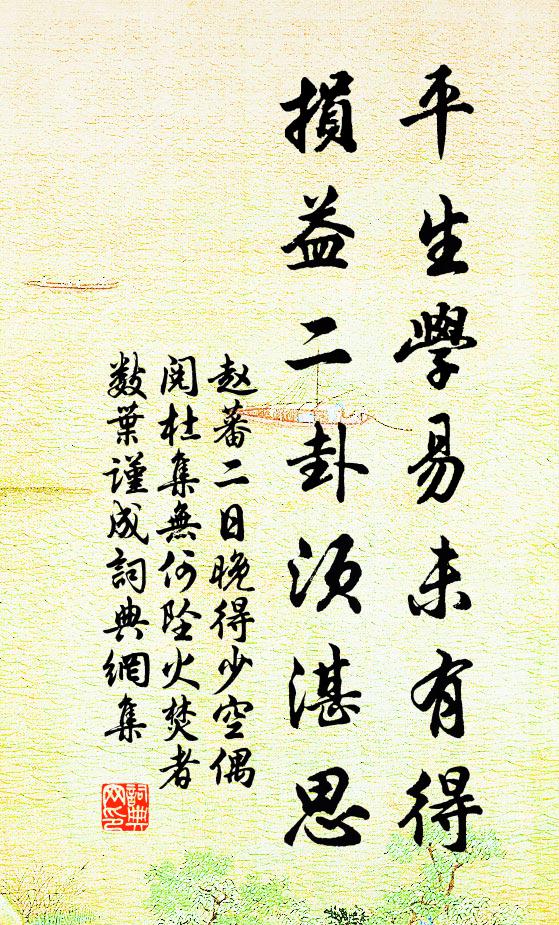 平生學易未有得
損益二卦須湛思
赵蕃二日晚得少空偶
阅杜集無何墜火焚者
数葉謹成詞典網集
詞典
网印